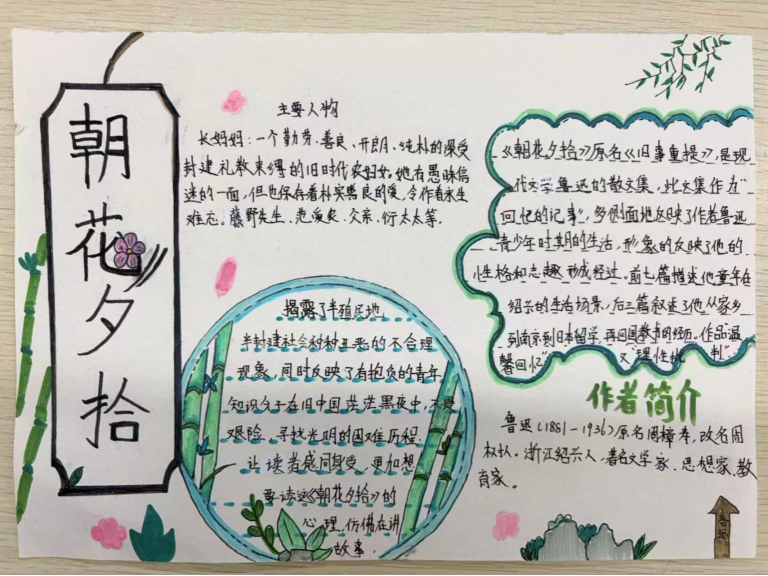 朝花夕拾
主要人物
长妈妈:一个勤劳、善良、开朗、纯朴的深受
封建礼教束缚的旧时代农妇女,她有愚昧信
迷的一面,但也保存着朴实善良的爱,令作者永生
难忘。藤野先生、范爱农、父亲、衍太太等。
揭露了半殖民地
半封建社会种种丑恶的不合理
现象,同时反映了有抱负的青年
知识分子在旧中国茫茫黑夜中,不畏
艰险,寻找光明的困难历程。
让读者感同身受,更加想
要读这《朝花夕拾》的
心理,仿佛在讲
故事.
《朝花夕拾》原名《旧事重提》,是现
代文学鲁迅的散文集,此文集作为"
回忆的记事",多侧面地反映了作者鲁迅
青少年时期的生活,形象的反映了他的
性格和志趣形成经过。前七篇描述他童年在
绍兴的生活场景,后三篇叙述了他从家乡
到南京到日本留学,再回国教书的经历,作品"温
馨回忆"又"理性批判"
作者简介
鲁迅(1881-1936)原名周樟寿,改名周
树人。浙江绍兴人,著名文学家、思想家、教
育家。